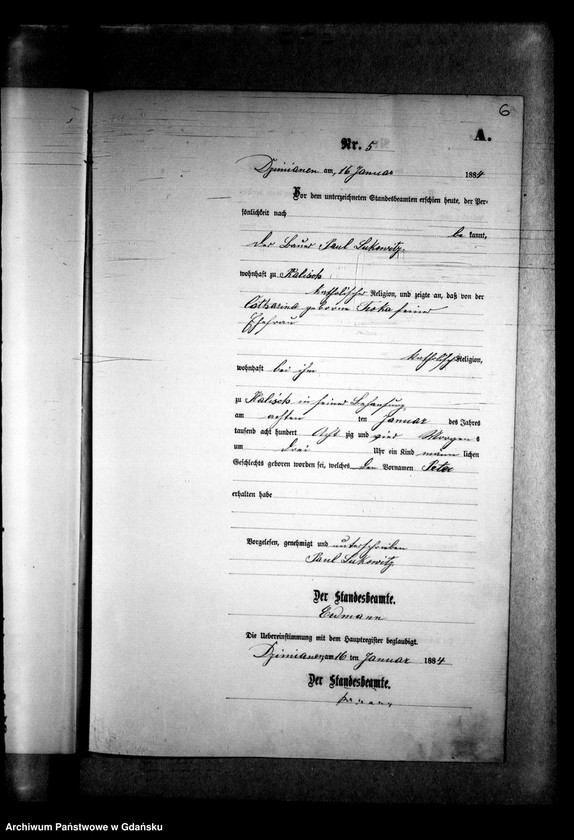 6
A.
Nr. 5
Dzimianen am, 16 Januar 1884
Vor dem unterzeichneten Standesbeamten erschien heute, der Per-
sönlichkeit nach
be kannt,
der Bauer Paul Lukowitz
wohnhaft zu Kalisch
katholischer Religion, und zeigte an, daß von der
Catharina geborene seiner
Ehefrau
katholisch Religion,
wohnhaft bei ihm
zu Kalisch in seiner Behausung
am achten ten Januar des Jahres
tausend acht hundert Acht zig und vier Morgens
um drei Uhr ein Kind männ lichen
Geschlechts geboren worden sei, welches den Vornamen Peter
erhalten habe
Vorgelesen, genehmigt und unterschrieben
Paul Lukowitz
Der Standesbeamte.
Erdmann
Die Uebereinstimmung mit dem Hauptregister beglaubigt.
Dzimianen, am 16 ten Januar 1884
Der Standesbeamte.
Archiwum Państwowe w Gdańsku